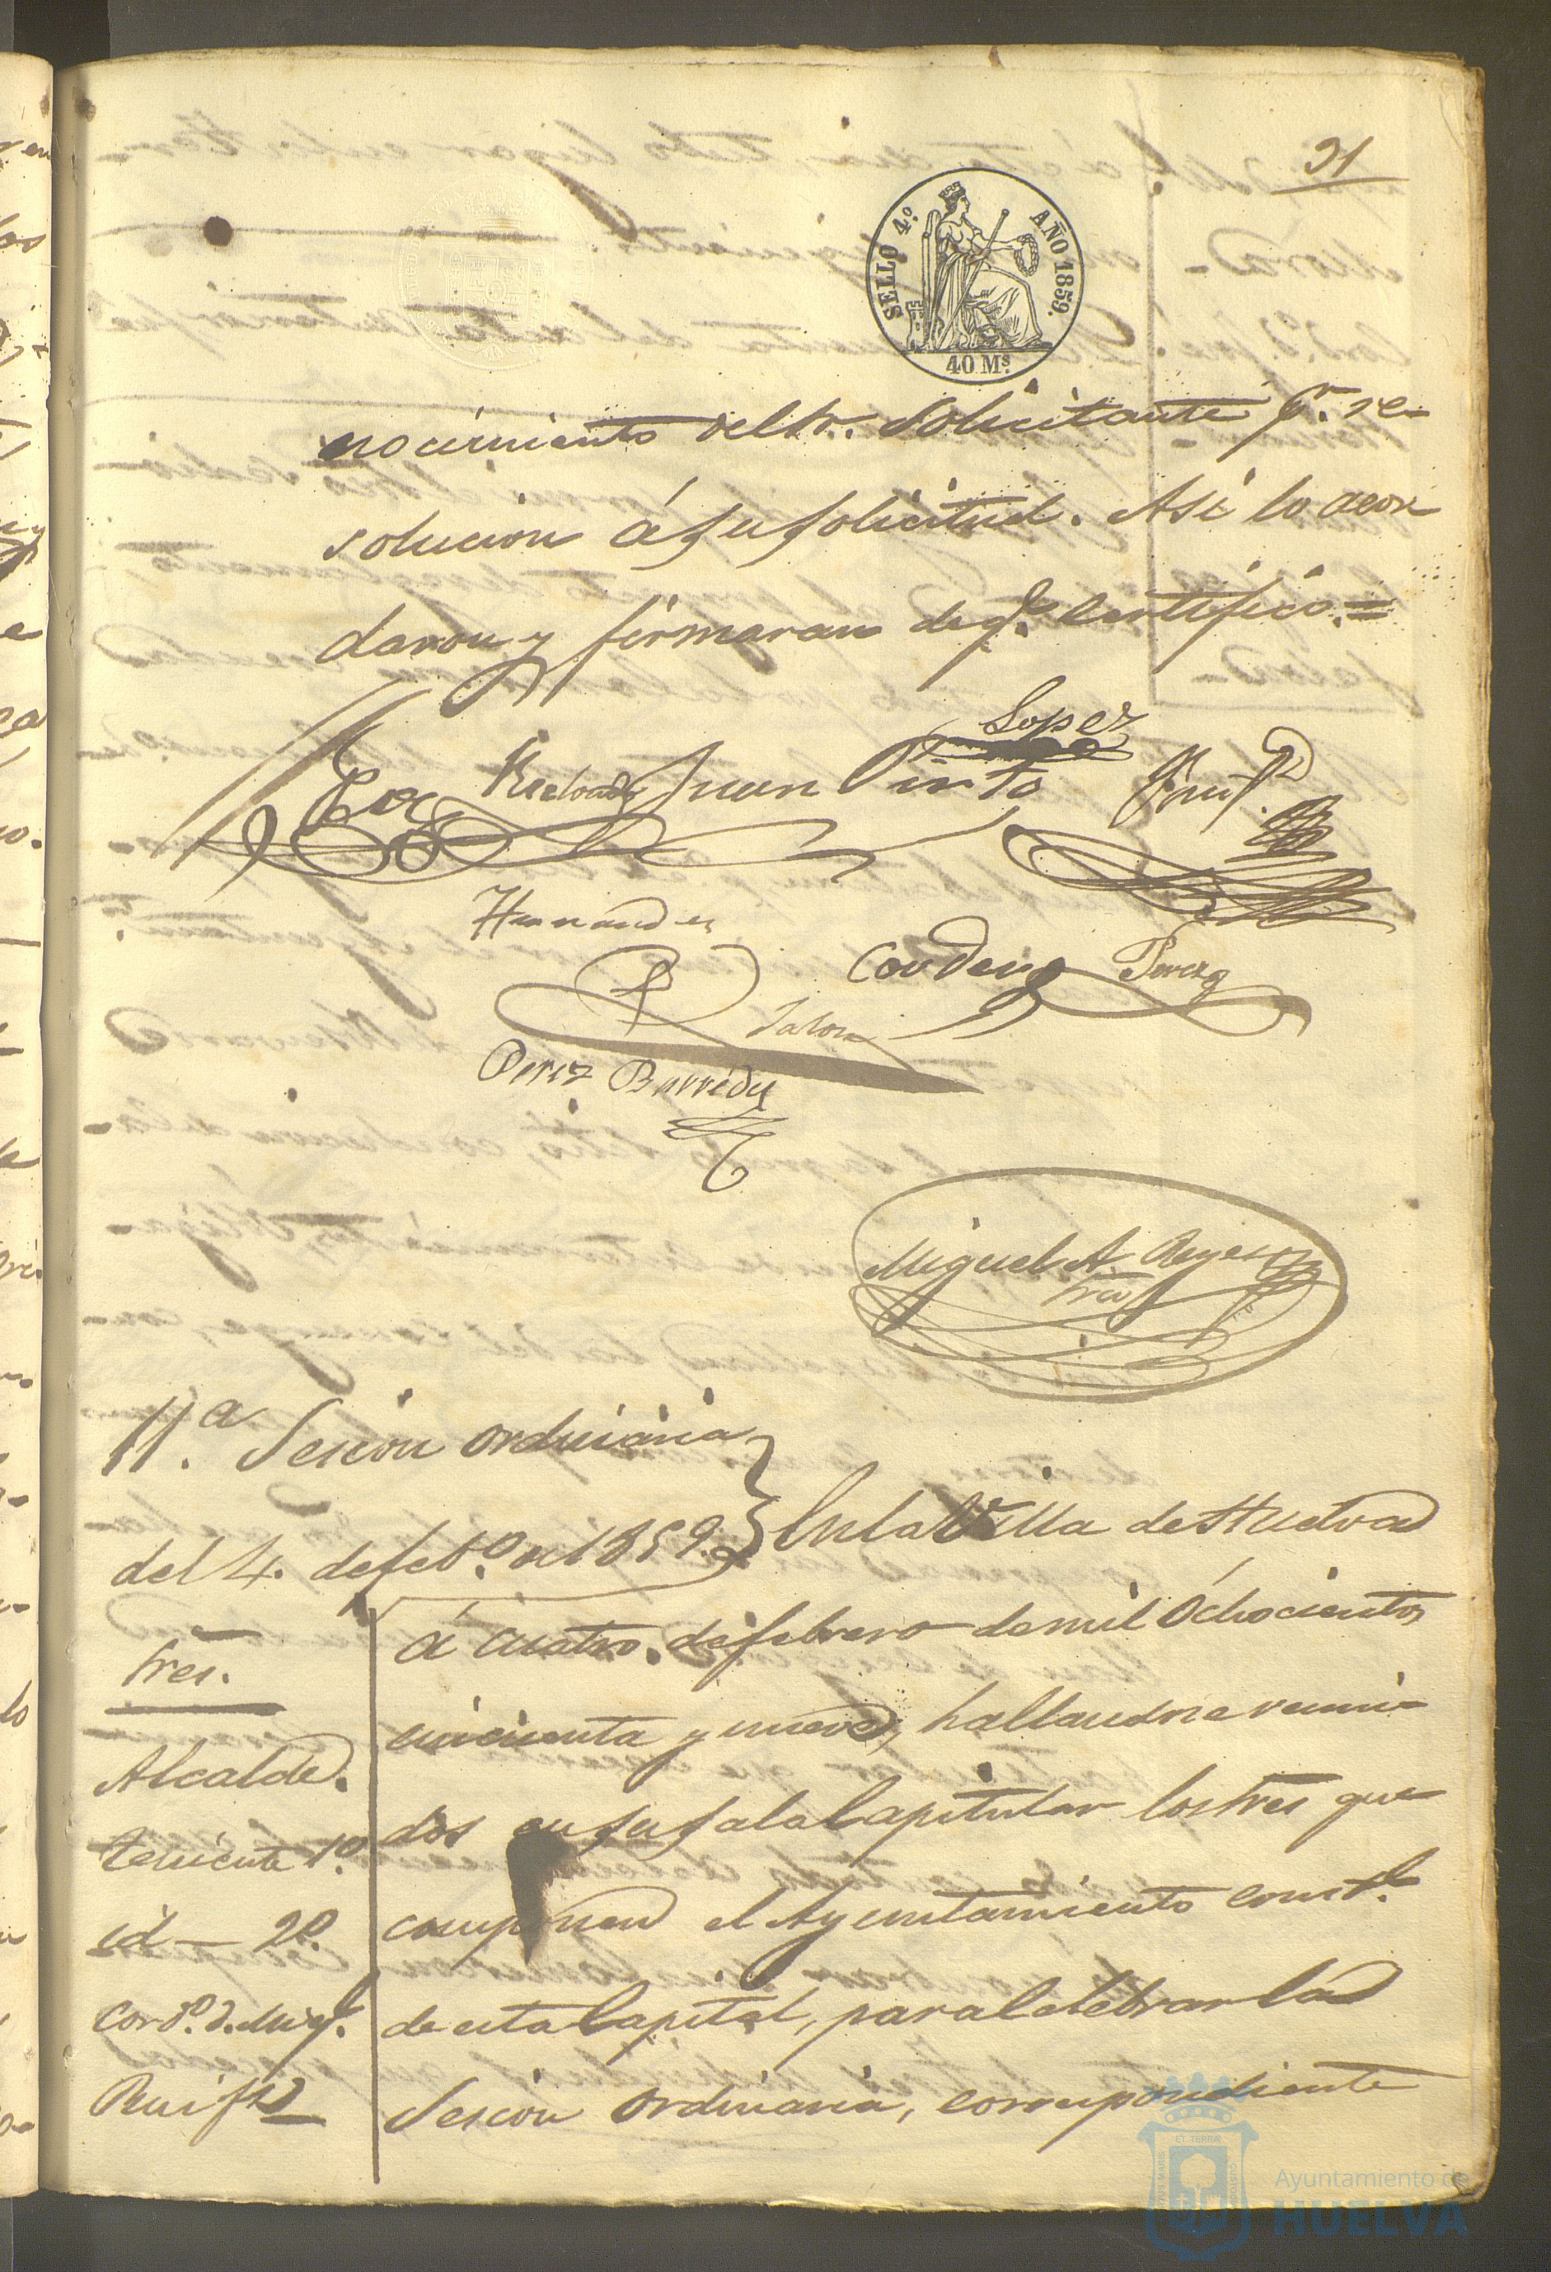 31
SELLO 4.º AÑO 1859.
40 Ms.
nocimiento del Sr. Solicitante pr. re-
solucion á su solicitud. Asi lo acor
daron y firmaran de qe. certifico.=
Lopez
Juan Pinto
Hernandez
Perez
Perez Barreda
Miguel A. Reyes
Srio
11.ª Sesion ordinaria
del 4. de feb.º de 1859.
En la Villa de Huelva
á cuatro. de febrero de mil Ochocientos
cincuenta y nueve, hallandose reuni-
dos en su sala Capitular los Sres que
componen el Ayuntamiento constl.
de esta Capital, para celebrar la
Sesion Ordinaria, correspondiente
Sres.
Alcalde.
Teniente 1º.
id — 2º.
Cord.º d. Migl.
Ruiz
Ayuntamiento de
HUELVA